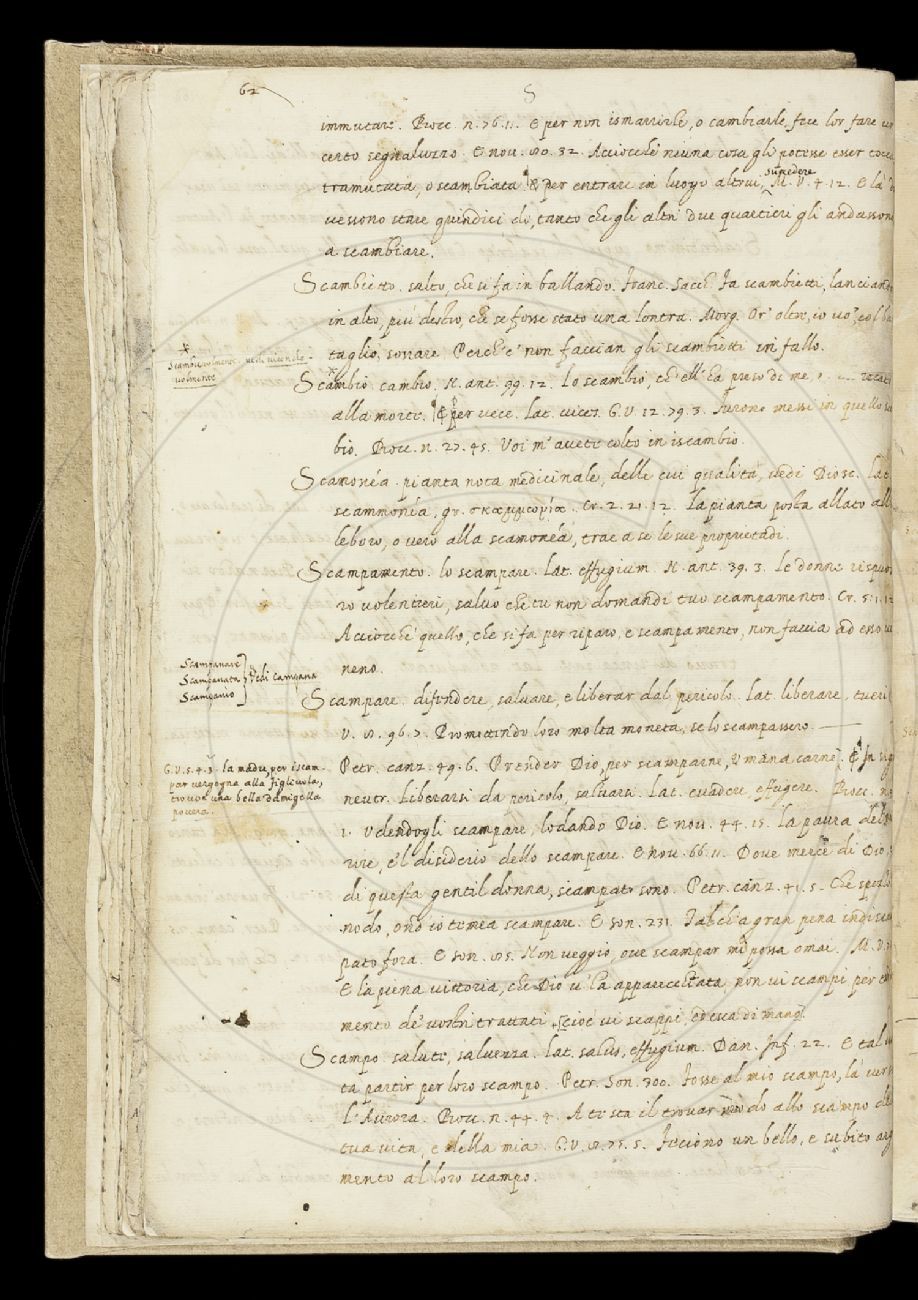 62
S
immutare. Bocc. n. 76. 11. E per non ismarrirle, o cambiarle, fece lor fare un
certo segnaluzzo. E nov. 80. 32. Acciocchè niuna cosa gli potesse esser tocca
tramutata, o scambiata. E per entrare in luogo altrui, succedere M. V. 4. 12. E là do
vessono stare quindici dì, tanto che gli altri due quartieri gli andassono
a scambiare.
Scambietto. salto, che si fa in ballando. Franc. Sacch. Fa scambietti, lanciando
in alto, più destro, che se fosse stato una lontra. Morg. Or' oltre, io vo' col ba
taglio, sonare Perch' e' non faccian gli scambietti in fallo.
* Scambievolmente. vedi vicende-
volmente
Scambio. cambio. N. ant. 99. 12. Lo scambio, ch' ell' ha preso di me, recat
alla morte. E per vece. Lat. vices. G. V. 12. 79. 3. Furono messi in quello scā
bio. Bocc. n. 27. 45. Voi m' avete colto in iscambio.
Scamonéa. pianta nota medicinale, delle cui qualità, vedi Diosc. Lat.
scammonéa, gr. σκαμμωνία. Cr. 2. 21. 12. La pianta posta allato all'
leboro, o vero alla scamonéa, trae a se le sue proprietadi.
Scampamento. lo scampare. Lat. effugium. N. ant. 39. 3. Le donne rispuo
ro volentieri, salvo che tu non domandi tuo scampamento. Cr. 5. 1. 12
Acciocchè quello, che si fa per riparo, e scampamento, non faccia ad esso ve
neno.
Scampanare
Scampanata } vedi Campana
Scampanio
Scampare. difendere, salvare, e liberar dal pericolo. Lat. liberare, tueri
V. 8. 96. 7. Promettendo loro molta moneta, se lo scampassero.
G. V. 5. 4. 3. la madre, per iscam-
par vergogna alla figliuola,
trovò una bella damigella
povera.
Petr. canz. 49. 6. Prender Dio, per scamparne, Umana carne. E In sig
neutr. Liberarsi da pericolo, salvarsi. Lat. evadere effugere. Bocc. no
1. Vedendogli scampare, lodando Dio. E nov. 44. 15. La paura del mo
rire, e 'l disiderio dello scampare. E nov. 66. 11. Dove mercè di Dio,
di questa gentil donna, scampato sono. Petr. canz. 41. 5. Che spezzò
nodo, ond' io temea scampare. E son. 231. Talch' a gran pena indi scam
pato fora. E son. 85. Non veggio, ove scampar mi possa omai. M. V.
E la piena vittoria, che Dio v' ha apparecchiata, non vi scampi per
mento de' vostri trattati. cioè vi scappi, ed esca di mano.
Scampo. salute, salvezza. Lat. salus, effugium. Dan. Inf. 22. E tal
ta partir per loro scampo. Petr. Son. 300. Fosse al mio scampo, là ver
l' Aurora. Bocc. n. 44. 4. A te sta il trovar modo allo scampo della
tua vita, e della mia. G. V. 8. 75. 5. Feciono un bello, e subito arg
mento al loro scampo.